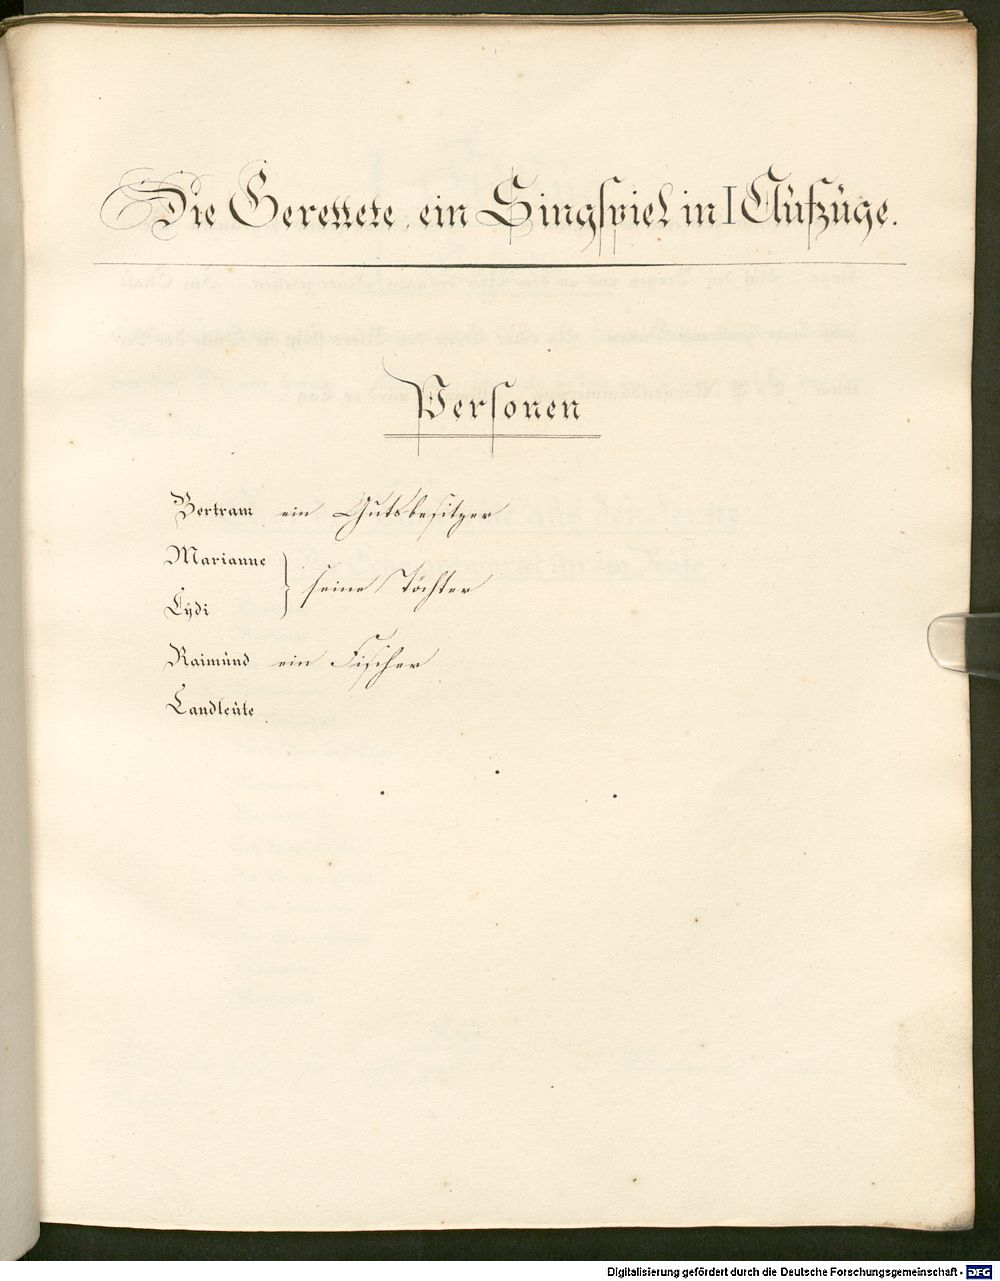 Die Gerettete, ein Singspiel in I Aufzüge.
Personen
Bertram ein Gutsbesitzer
Marianne
seine Töchter
Lydi
Raimund ein Fischer
Landleute
Digitalisierung gefördert durch die Deutsche Forschungsgemeinschaft - DFG